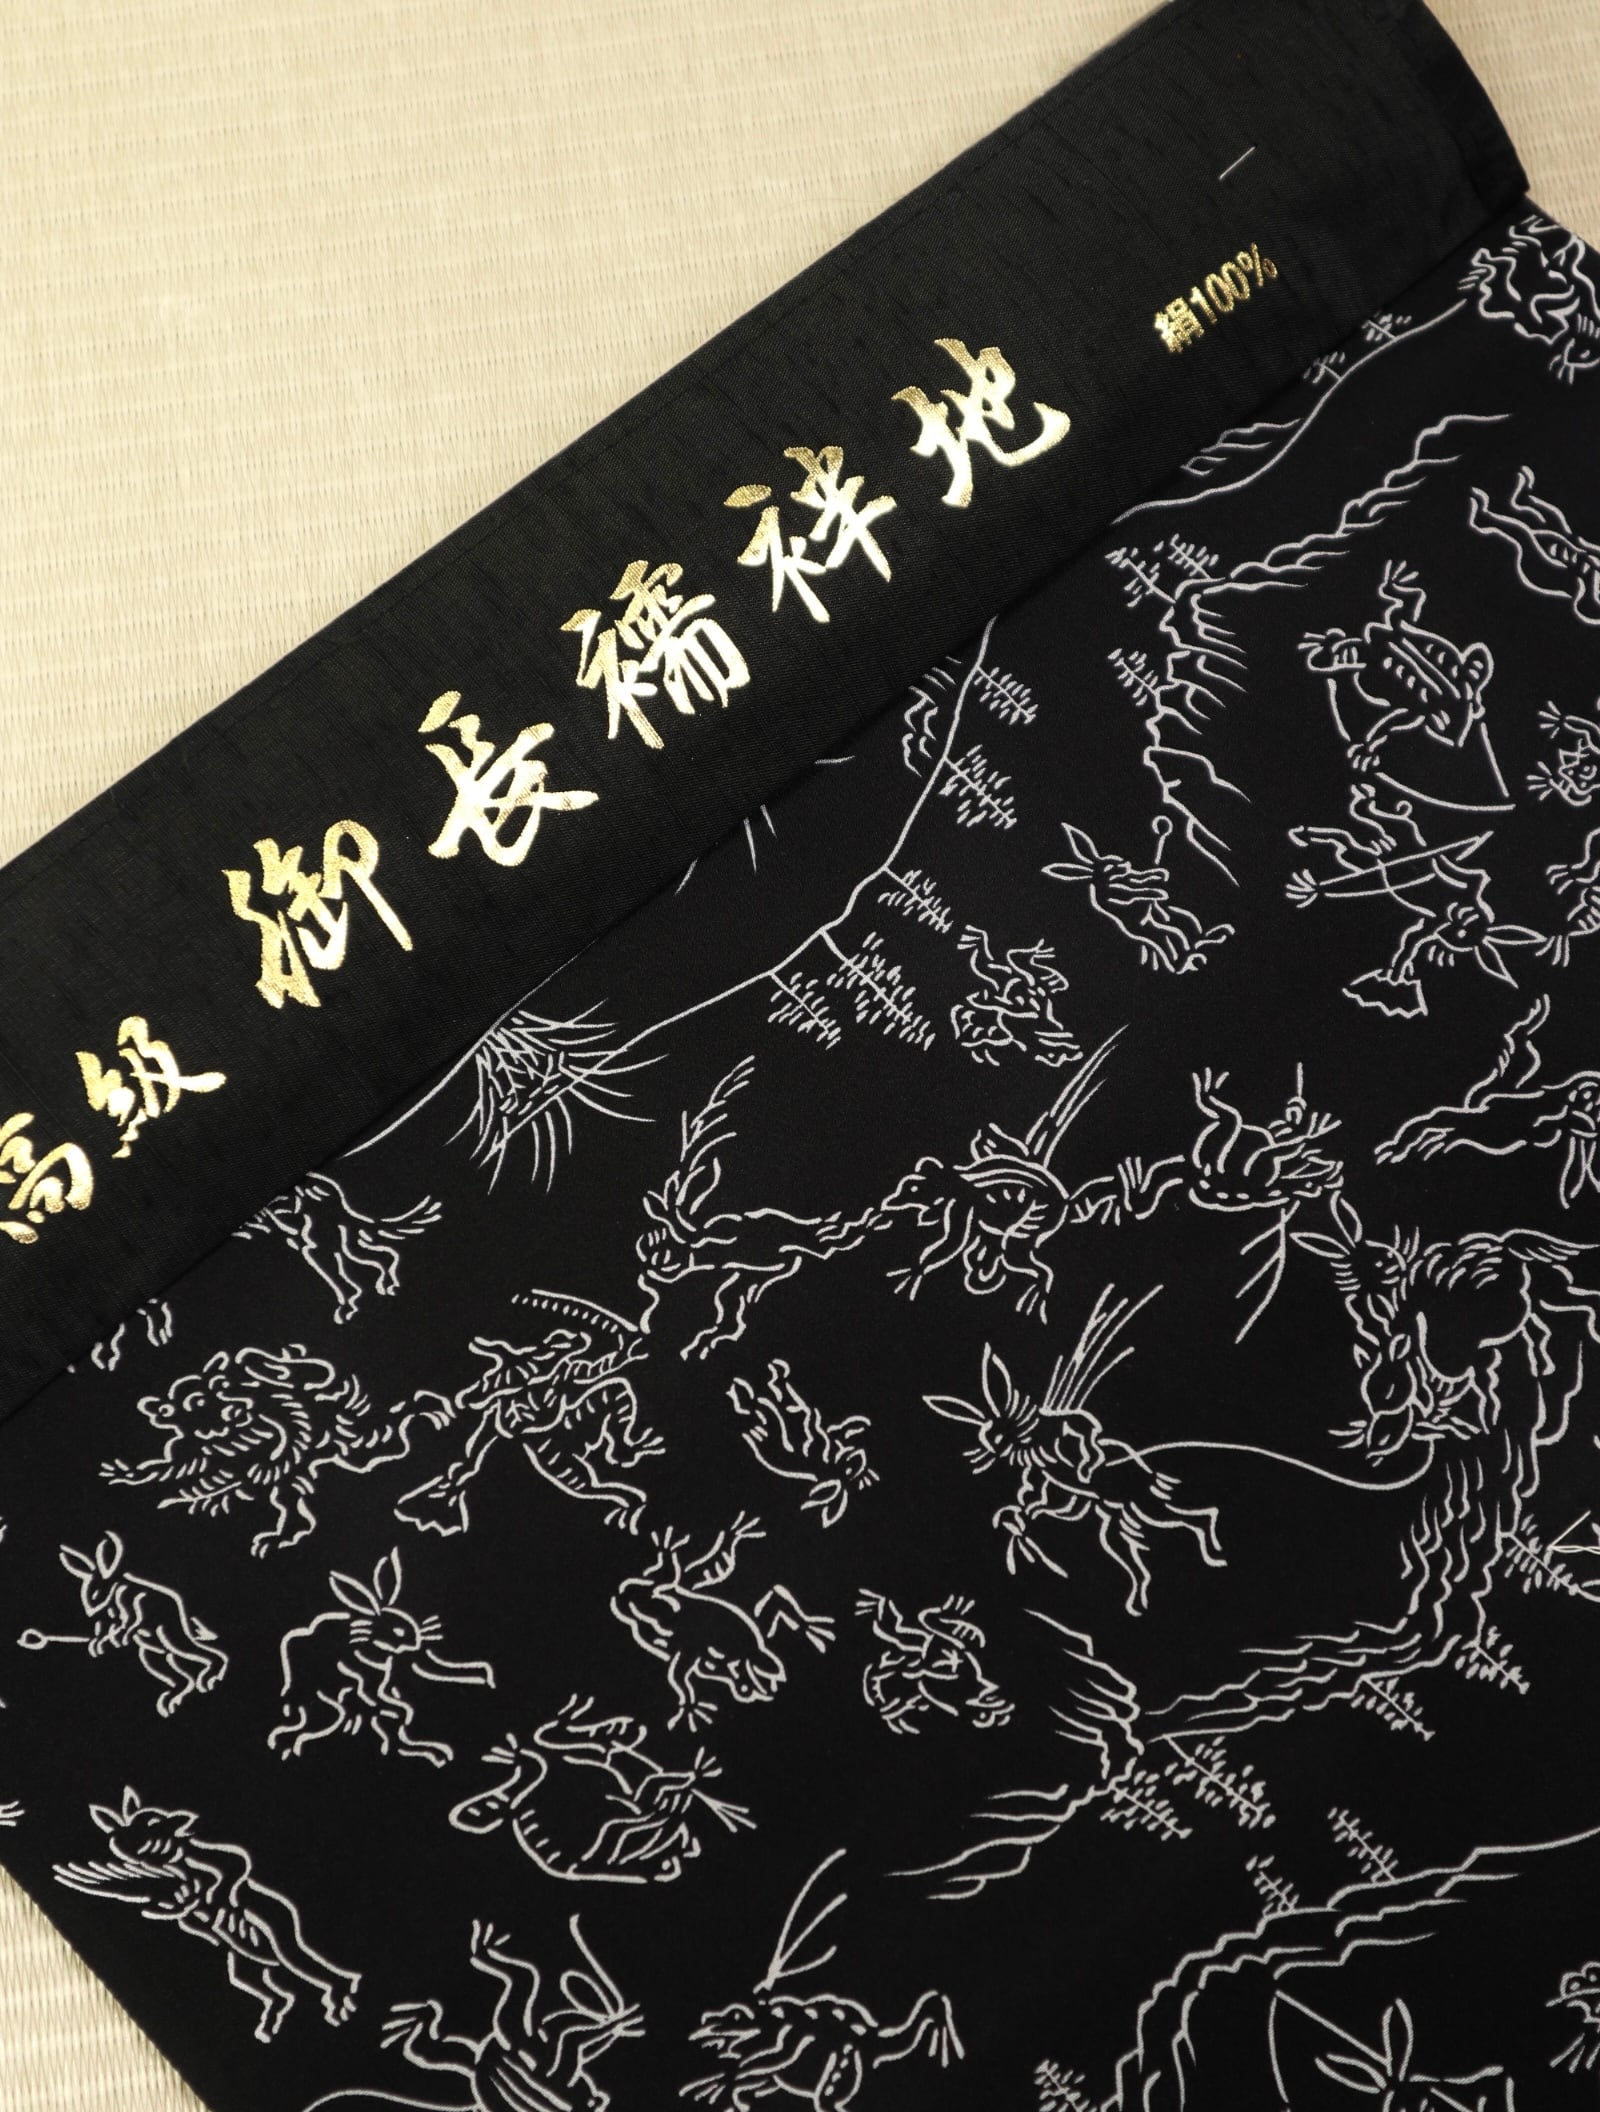 高級 御長襦袢地
絹100%